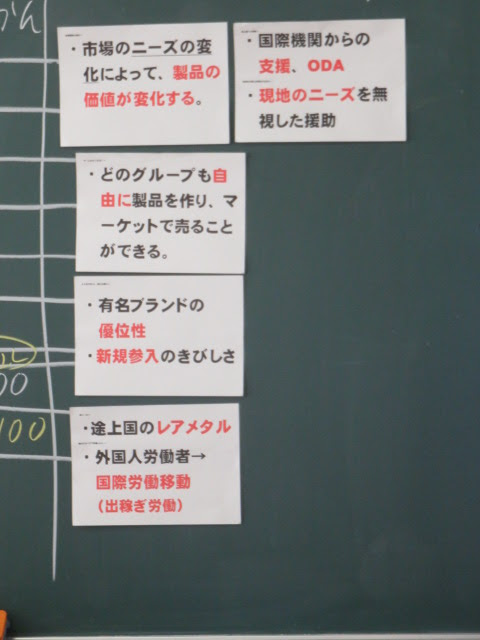 ・市場のニーズの変
化によって、製品の
価値が変化する。
・国際機関からの
支援、ODA
・現地のニーズを無
視した援助
・どのグループも自
由に製品を作り、マ
ーケットで売ること
ができる。
・有名ブランドの
優位性
・新規参入のきびしさ
・途上国のレアメタル
・外国人労働者→
国際労働移動
（出稼ぎ労働）
00
100